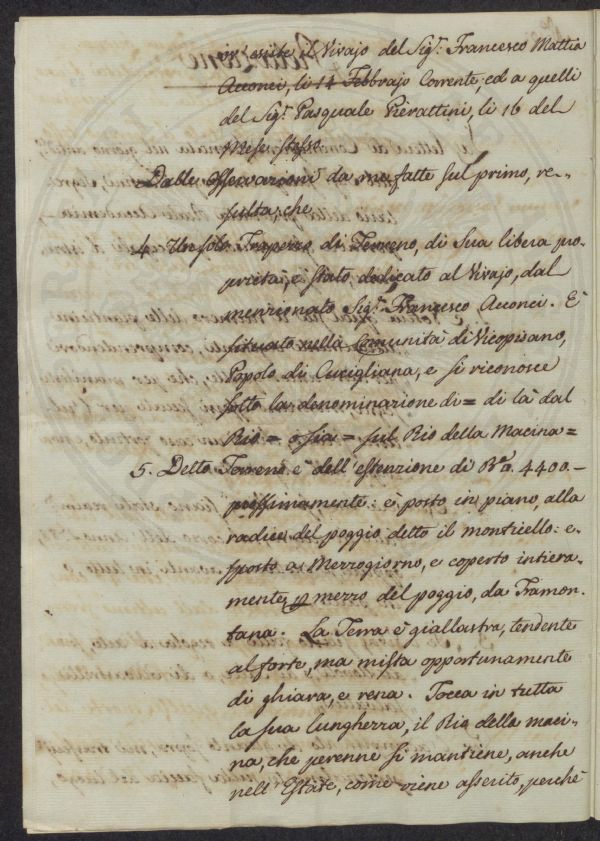 ov' esiste il Vivajo del Sig.r Francesco Mattia
Acconci, li 14 Febbrajo Corrente, ed a quelli
del Sig.r Pasquale Pierattini, li 16 del
Mese stesso.
Dalle osservazioni da me fatte sul primo, re-
sulta: che
4. Un solo Trapezzo di Terreno, di Sua libera pro
prietà, è stato dedicato al Vivajo, dal
menzionato Sig.r Francesco Acconci. È
situato nella Comunità di Vicopisano,
Popolo di Cucigliana, e si riconosce
sotto la denominazione di = di là dal
Rio = o sia = sul Rio della Macina =
5. Detto Terreno è dell' estenzione di B.a 4400.-
prossimamente: è posto in piano, alla
radice del poggio detto il monticello: e-
sposto a Mezzogiorno, e coperto intiera-
mente, p mezzo del poggio, da Tramon-
tana. La Terra è giallastra, tendente
al forte, ma mista opportunamente
di ghiara, e rena. Tocca in tutta
la sua lunghezza, il Rio della maci-
na, che perenne si mantiene, anche
nell' Estate, come viene asserito, perchè